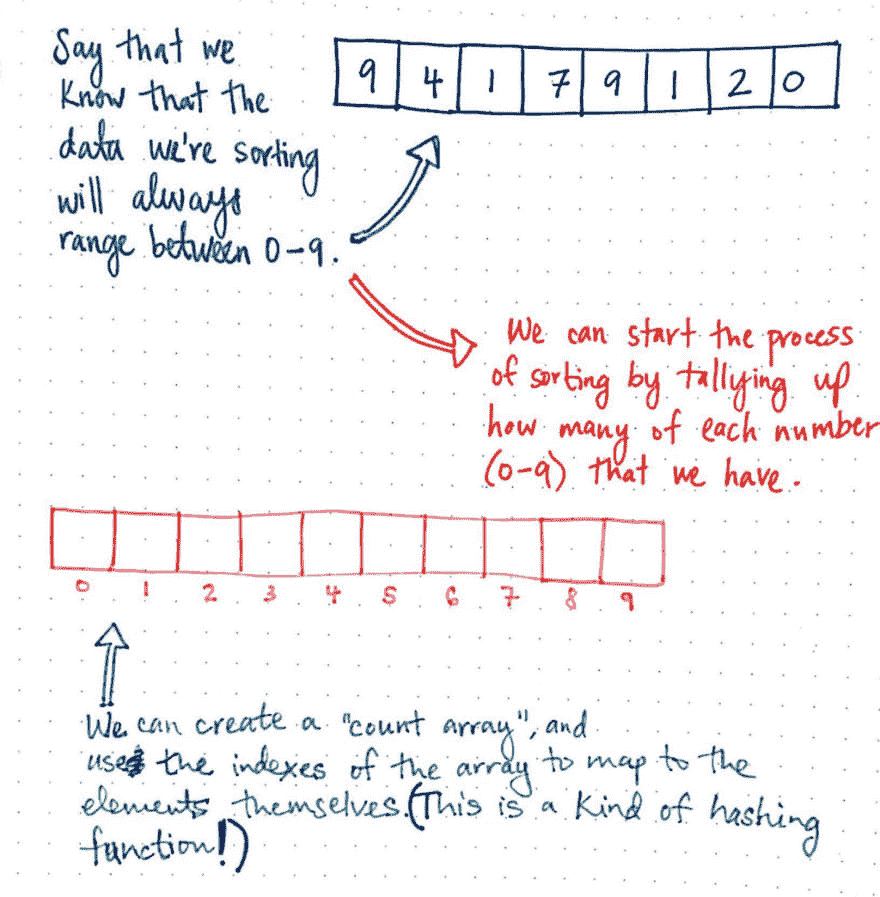 Say that we
know that the
data we're sorting
will always
range between 0-9.
9 4 1 7 9 1 2 0
We can start the process
of sorting by tallying up
how many of each number
(0-9) that we have.
0 1 2 3 4 5 6 7 8 9
We can create a "count array", and
use the indexes of the array to map to the
elements themselves. (This is a kind of hashing
function!)